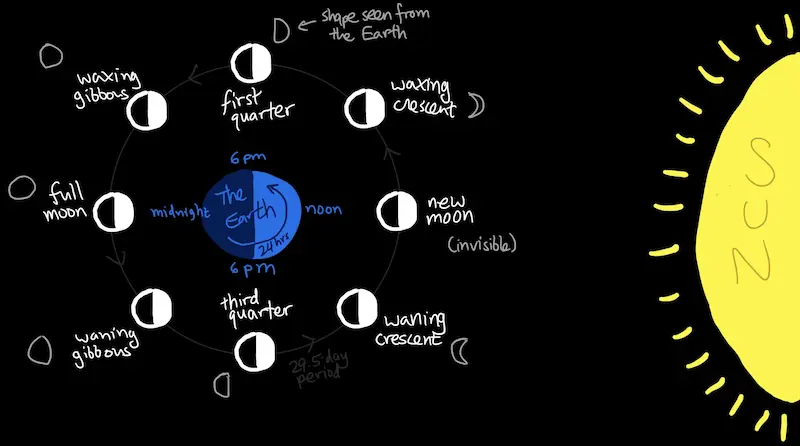 shape seen from
the Earth
waxing
gibbous
first
quarter
waxing
crescent
6 pm
full
moon
midnight
The
Earth
24 hrs
noon
new
moon
(invisible)
6 pm
waning
gibbous
third
quarter
waning
crescent
29.5-day
period
SUN